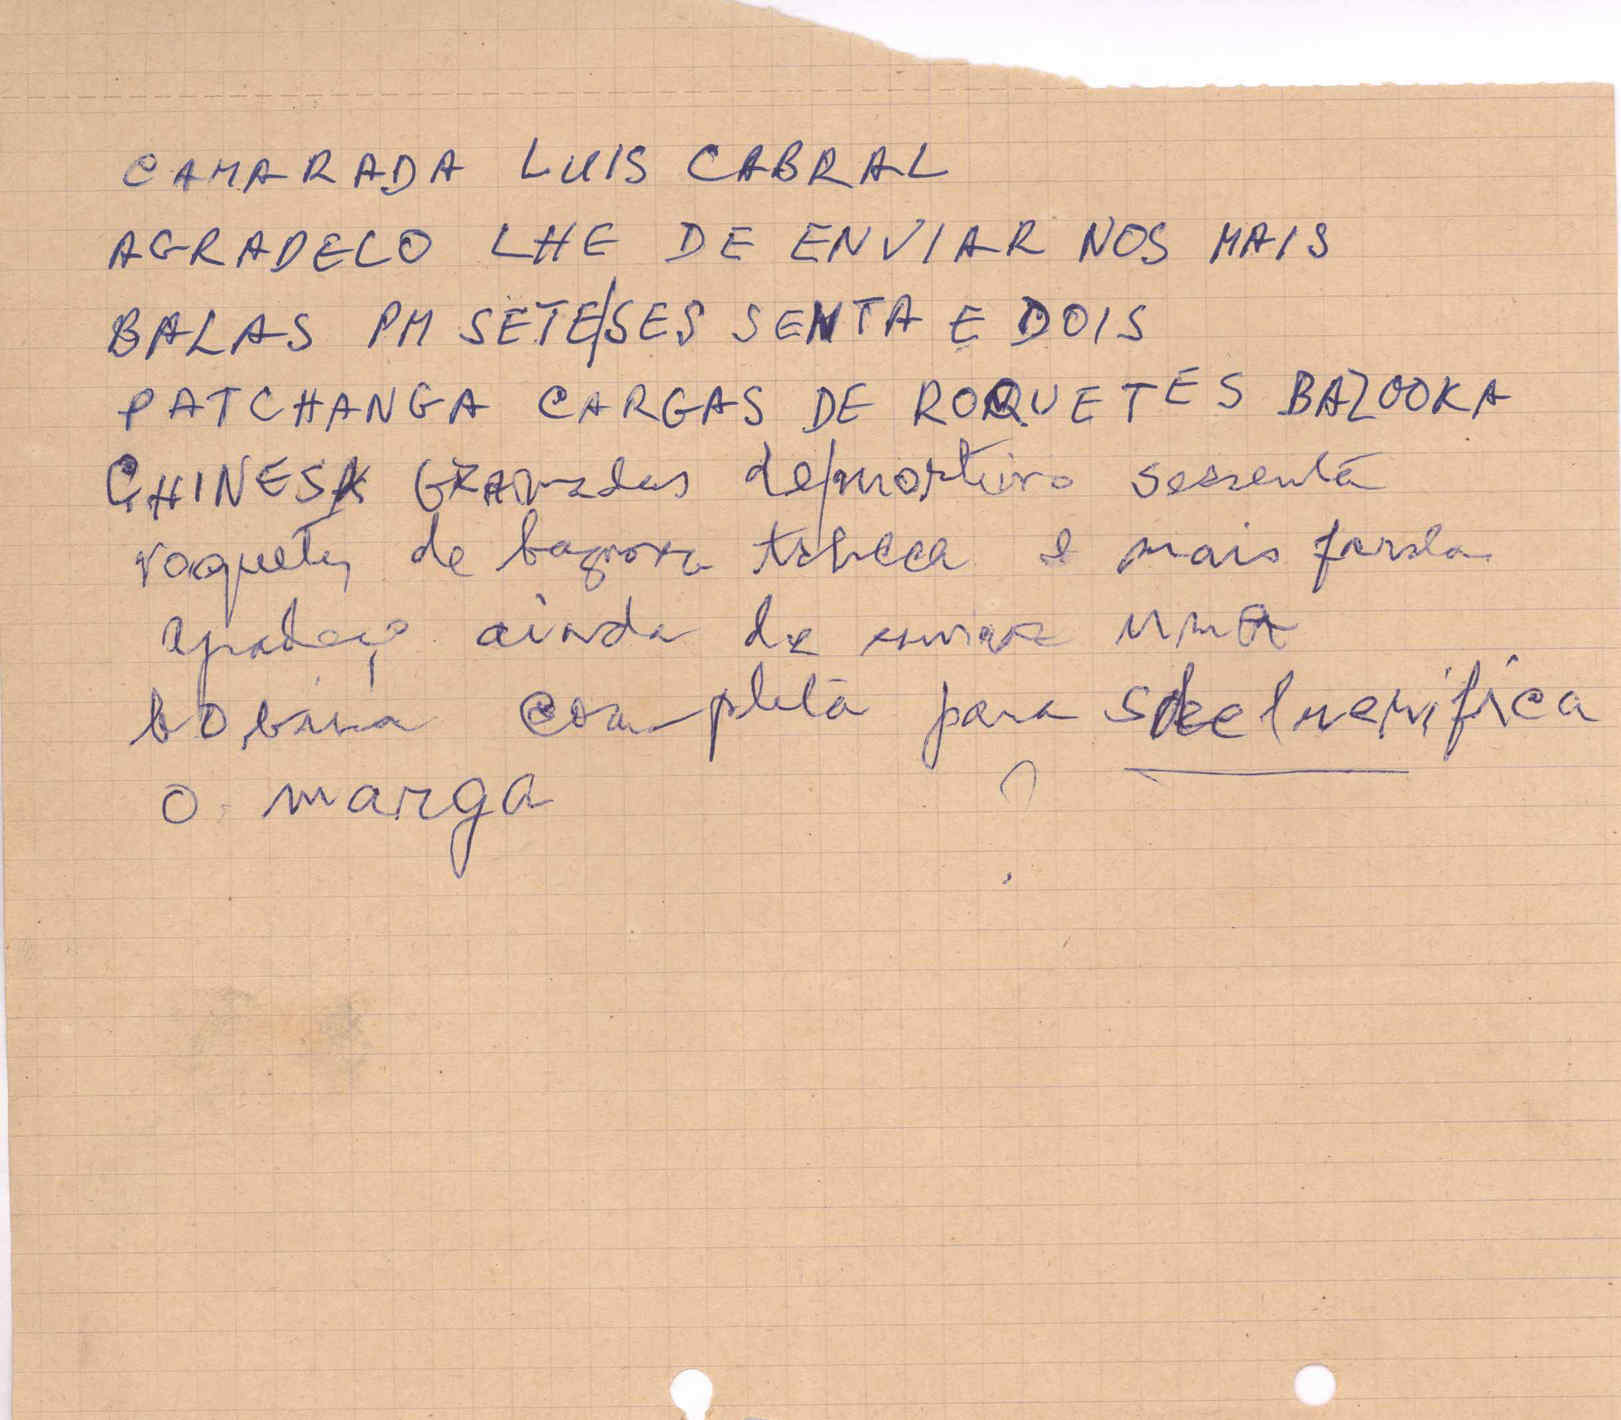 CAMARADA LUIS CABRAL
AGRADEÇO LHE DE ENVIAR NOS MAIS
BALAS PM SETE/SES SENTA E DOIS
PATCHANGA CARGAS DE ROQUETES BAZOOKA
CHINESA GRANADAS de/morteiro sessenta
roquetes de tcheca e mais farda
agradeço ainda de enviar uma
bobina completa para
O. marga
?